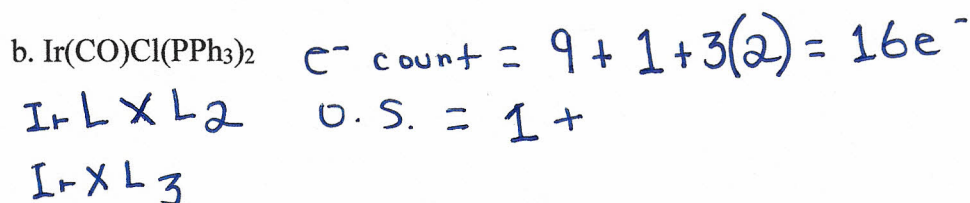 b. Ir(CO)Cl(PPh3)2 e⁻ count = 9 + 1 + 3(2) = 16e⁻
Ir L X L2 O.S. = 1+
Ir X L3